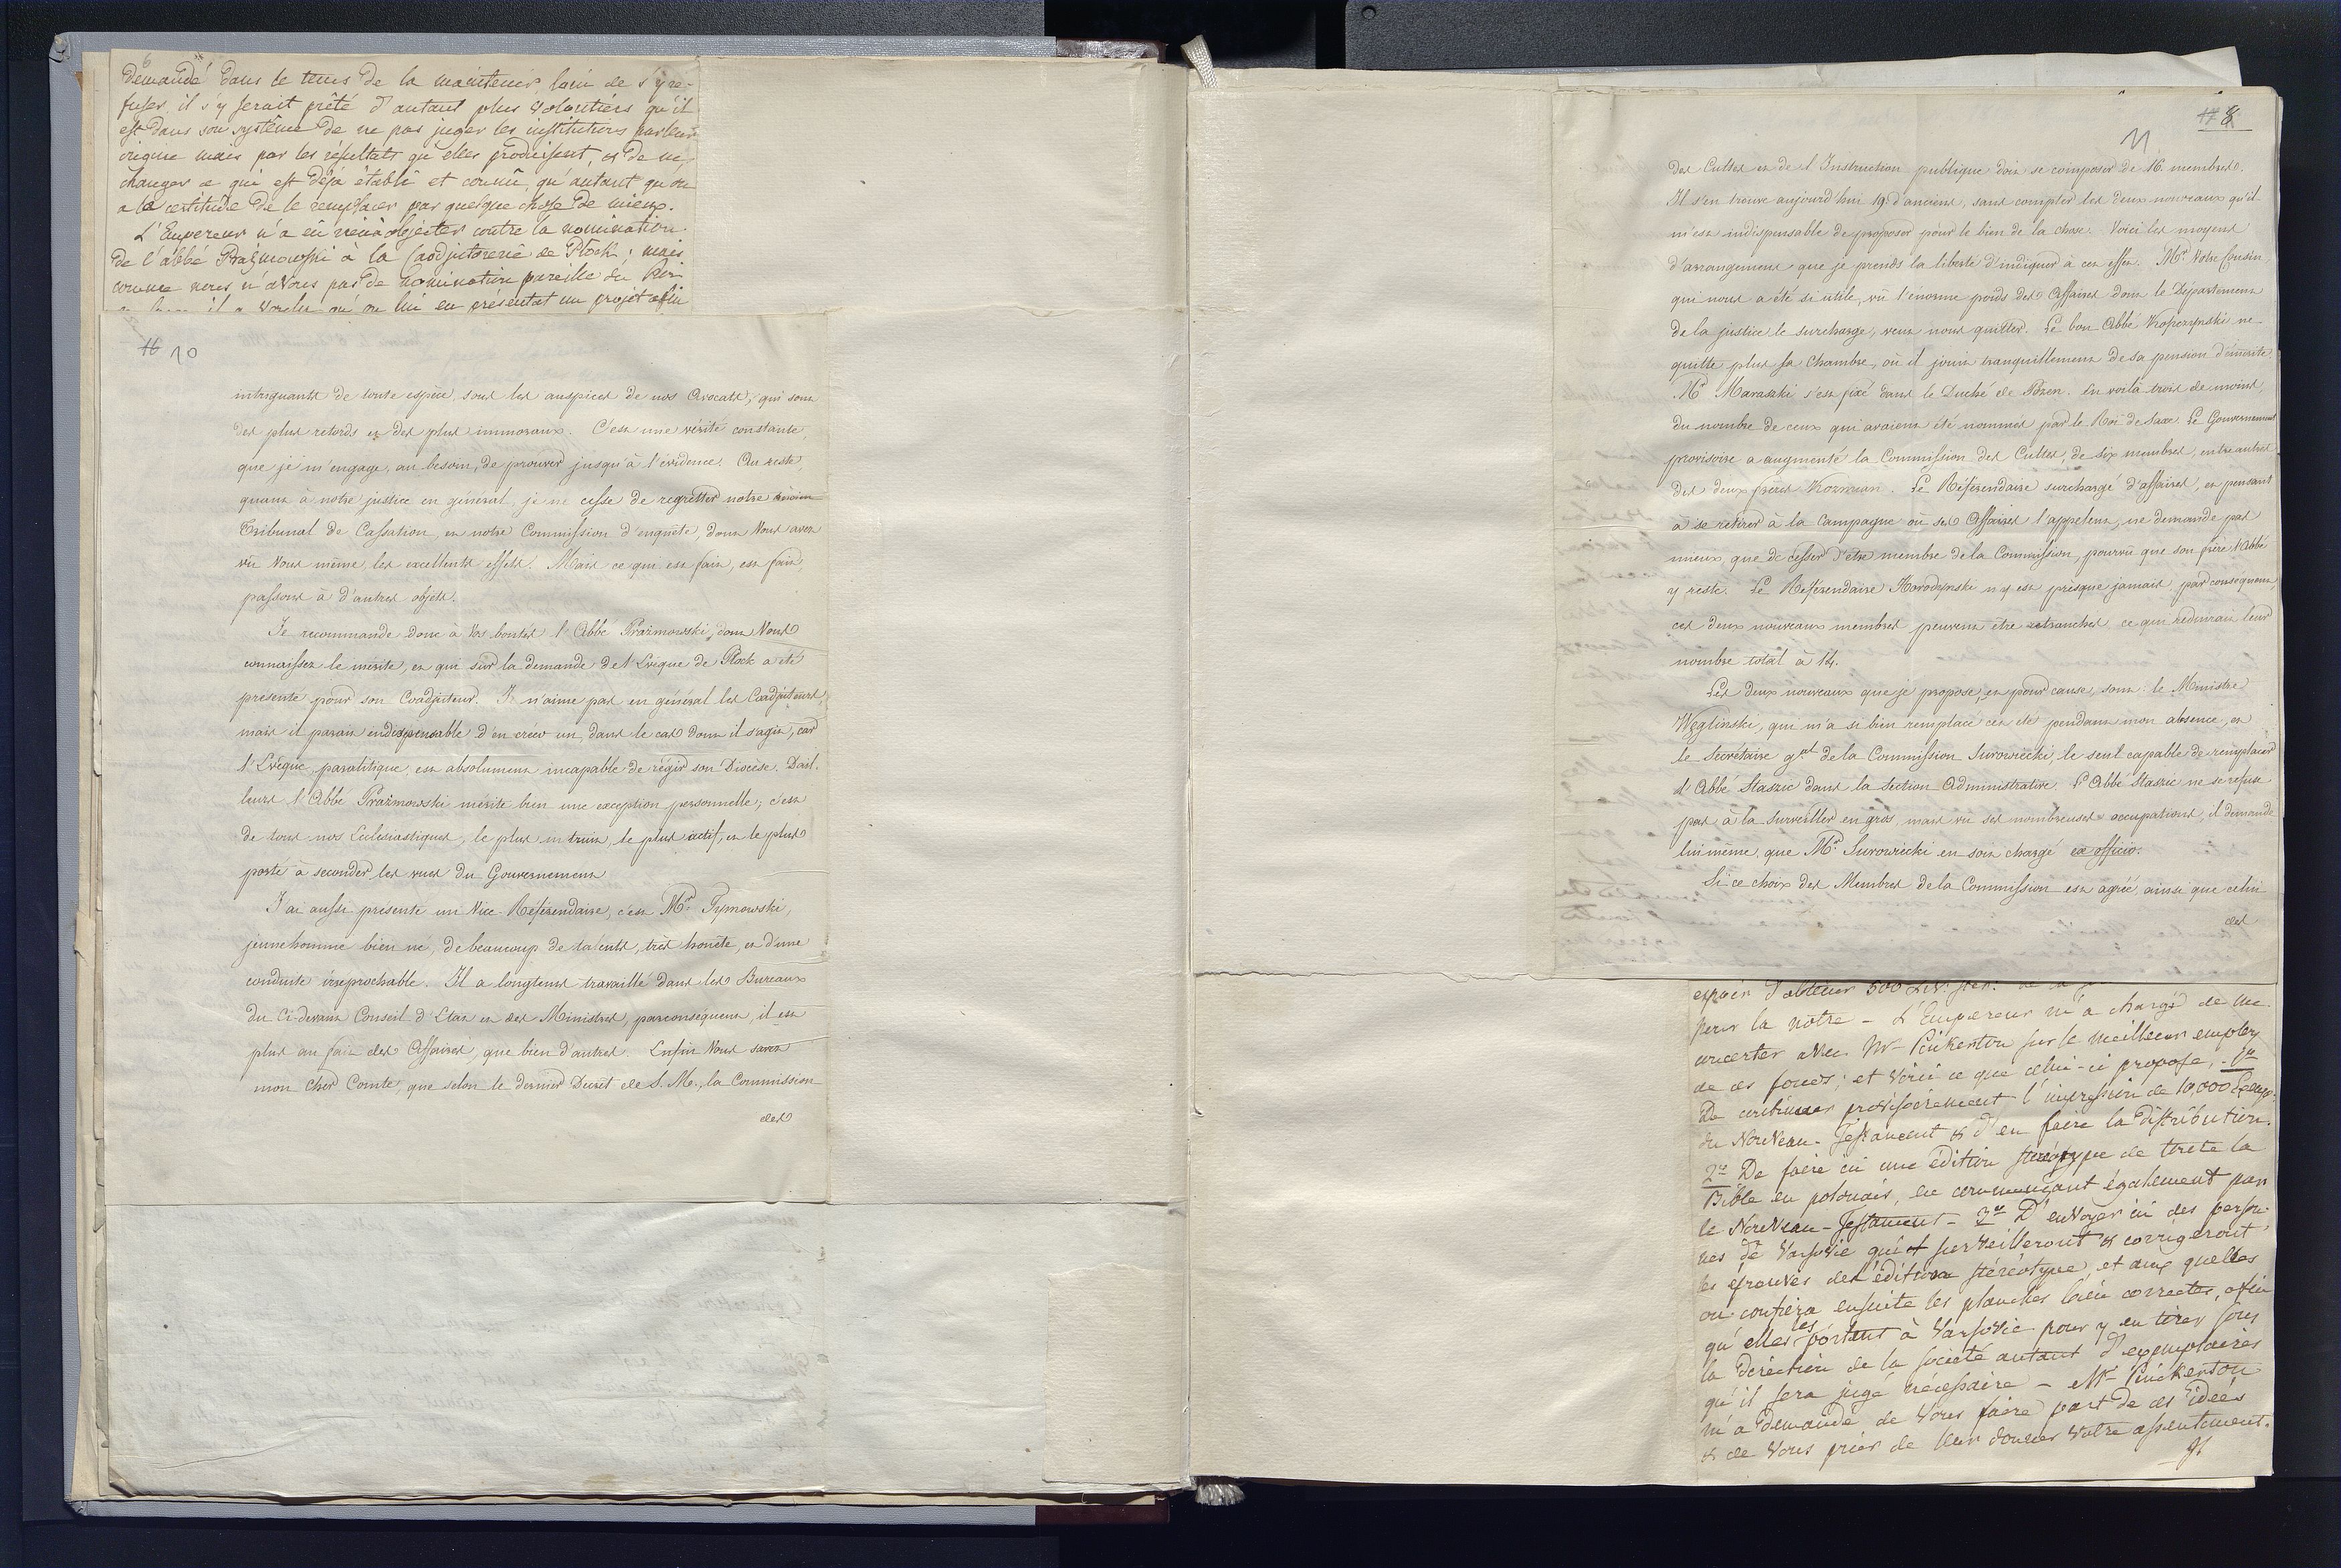 6
demandé dans le tems de la maintenir, loin de s'y re-
fuser, il s'y serait prêté d'autant plus volontiers qu'il
est dans son système de ne pas juger les institutions par leur
origine mais par les résultats qu'elles produisent, et de ne
changer ce qui est déjà établi et connû, qu'autant qu'on
a la certitude de le remplacer par quelque chose de mieux.
L'Empereur n'a eû rien à objecter contre la nomination
de l'abbé Prażmowski à la Coadjutorerie de Płock; mais
comme nous n'avons pas de nomination pareille du
il a voulu qu'on lui en présentat un projet afin
16 10
intriguants de toute espèce, sous les auspices de nos Avocats, qui sont
des plus retords et des plus immoraux. C'est une vérité constante,
que je m'engage, au besoin, de prouver jusqu'à l'évidence. Au reste,
quant à notre justice en général, je ne cesse de regretter notre ancien
Tribunal de Cassation, et notre Commission d'enquête, dont Vous avez
vû Vous même, les excellents effets. Mais ce qui est fait, est fait,
passons à d'autres objets.
Je recommande donc à Vos bontés l'Abbé Prażmowski, dont Vous
connaissez le mérite, et qui sur la demande de l'Evêque de Płock a été
présenté pour son Coadjuteur. Je n'aime pas en général les Coadjuteurs,
mais il parait indispensable d'en créer un, dans le cas dont il s'agit, car
l'Evêque, paralitique, est absolument incapable de régir son Diocèse. D'ail-
leurs l'Abbé Prażmowski mérite bien une exception personnelle; c'est
de tous nos Eclesiastiques, le plus instruit, le plus actif, et le plus
porté à seconder les vues du Gouvernement
J'ai aussi présenté un Vice-Référendaire, c'est Mr. Tymowski,
jeune homme bien né, de beaucoup de talents, très honête, et d'une
conduite irréprochable. Il a longtems travaillé dans les Bureaux
du Ci-devant Conseil d'Etat et des Ministres, par conséquent, il est
plus au fait des Affaires, que bien d'autres. Enfin Vous savez
mon cher Comte, que selon le dernier Décret de S. M., la Commission
des
17 8
11
des Cultes et de l'Instruction publique doit se composer de 16. membres.
Il s'en trouve aujourd'hui 19. d'anciens, sans compter les deux nouveaux qu'il
m'est indispensable de proposer pour le bien de la chose. Voici les moyens
d'arrangement que je prends la liberté d'indiquer à cet effet. Mr. Votre Cousin,
qui nous a été si utile, vû l'énorme poids des Affaires dont le Département
de la justice le surcharge, veut nous quitter. Le bon Abbé Kopczyński ne
quitte plus sa Chambre, où il jouit tranquillement de sa pension d'émérite.
Mr. Marasski s'est fixé dans le Duché de Posen. En voilà trois de moins,
du nombre de ceux qui avaient été nommés par le Roi de Saxe. Le Gouvernement
provisoire a augmenté la Commission des Cultes, de six membres, entre autres
des deux frères Kozmian. Le Référendaire surchargé d'affaires, et pensant
à se retirer à la Campagne où ses Affaires l'appelent, ne demande pas
mieux, que de cesser d'être membre de la Commission, pourvû que son frère l'Abbé
y reste. Le Référendaire Horodyski n'y est presque jamais, par conséquent,
ces deux nouveaux membres peuvent être retranchés, ce qui réduirait leur
nombre total à 14.
Les deux nouveaux que je propose, et pour cause, sont: le Ministre
Węgliński, qui m'a si bien remplacé cet été pendant mon absence, et
le Secrétaire gral de la Commission Surowiecki, le seul capable de remplacer
l'Abbé Staszic dans la Section Administrative. L'Abbé Staszic ne se refuse
pas à la surveiller en gros, mais vû ses nombreuses occupations, il demande
lui même, que Mr. Surowiecki en soit chargé ex officio.
Si ce choix des Membres de la Commission est agréé, ainsi que celui
des
espoir d'obtenir 500
pour la nôtre – L'Empereur m'a chargé de me
concerter avec Mr Pinkerton sur le meilleur emploi
de ces fonds; et voici ce que celui-ci propose, – 1o
De continuer provisoirement l'impression de 10,000 Exemp.
du Nouveau-Testament et d'en faire la distribution.
2o De faire ici une édition stéréotype de toute la
Bible en polonais, en commençant également par
le Nouveau-Testament – 3o D'envoyer ici des person-
nes de Varsovie qui surveilleront et corrigeront
les épreuves de l'édition stéréotype, et aux quelles
on confiera ensuite les planches bien correctes, afin
qu'elles les portent à Varsovie pour y en tirer sous
la direction de la société autant d'exemplaires
qu'il sera jugé nécessaire – Mr Pinckerton
m'a demandé de Vous faire part de ces idées
et de Vous prier de leur donner Votre assentiment.